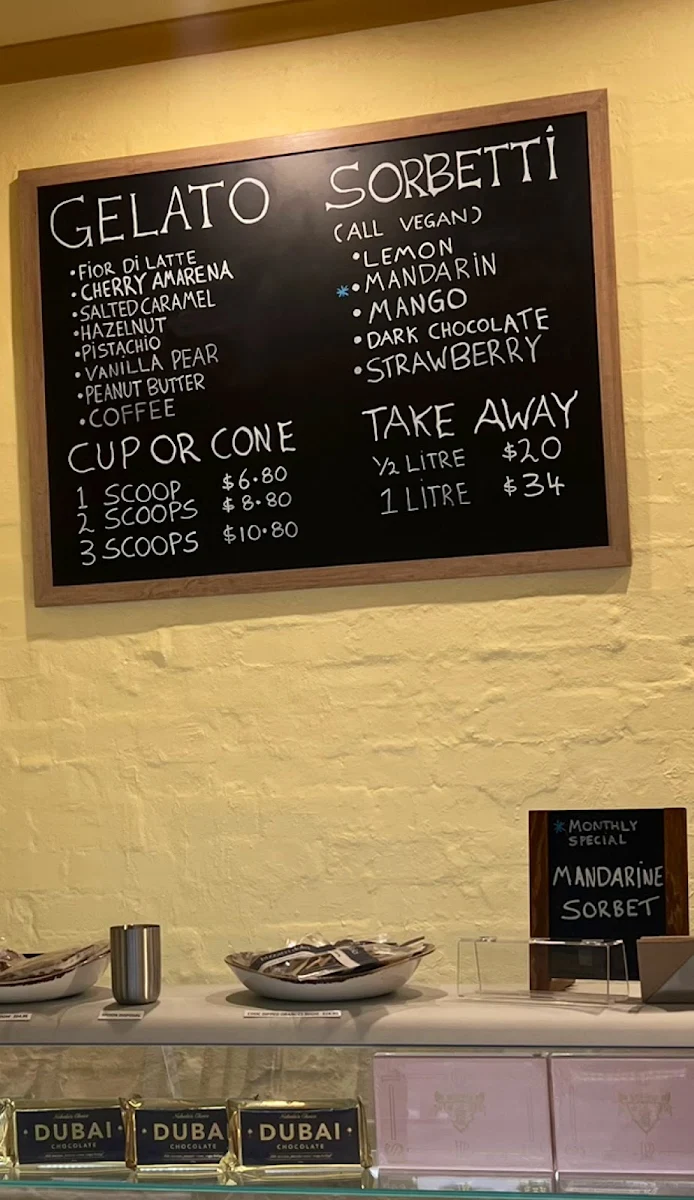 GELATO
• FIOR DI LATTE
• CHERRY AMARENA
• SALTED CARAMEL
• HAZELNUT
• PISTACHIO
• VANILLA PEAR
• PEANUT BUTTER
• COFFEE
CUP OR CONE
1 SCOOP $6.80
2 SCOOPS $8.80
3 SCOOPS $10.80
SORBETTI
(ALL VEGAN)
• LEMON
*• MANDARIN
• MANGO
• DARK CHOCOLATE
• STRAWBERRY
TAKE AWAY
½ LITRE $20
1 LITRE $34
*MONTHLY
SPECIAL
MANDARINE
SORBET
DUBAI
CHOCOLATE
DUBA
CHOCOLATE
DUBAI
CHOCOLATE